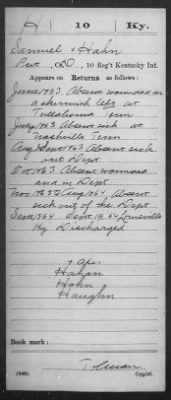 H | 10 | Ky.
Samuel + Hahn
Pvt, Co D, 10 Reg't Kentucky Inf.
Appears on Returns as follows:
June 1863 Absent wounded in
a skirmish left at
Tullahoma Tenn
July 1863 Absent sick at
Nashville Tenn
Aug 1863 Absent sick
out Dept
Oct 1863 Absent wounded
and in Dept
Nov 1863 to Aug 1864, Absent
sick out of the Dept
Sept 1864 Sept 19, 64 Louisville
Ky Discharged
+ Also
Hahan
Hohn
Haughn
Book mark:
Copyist.